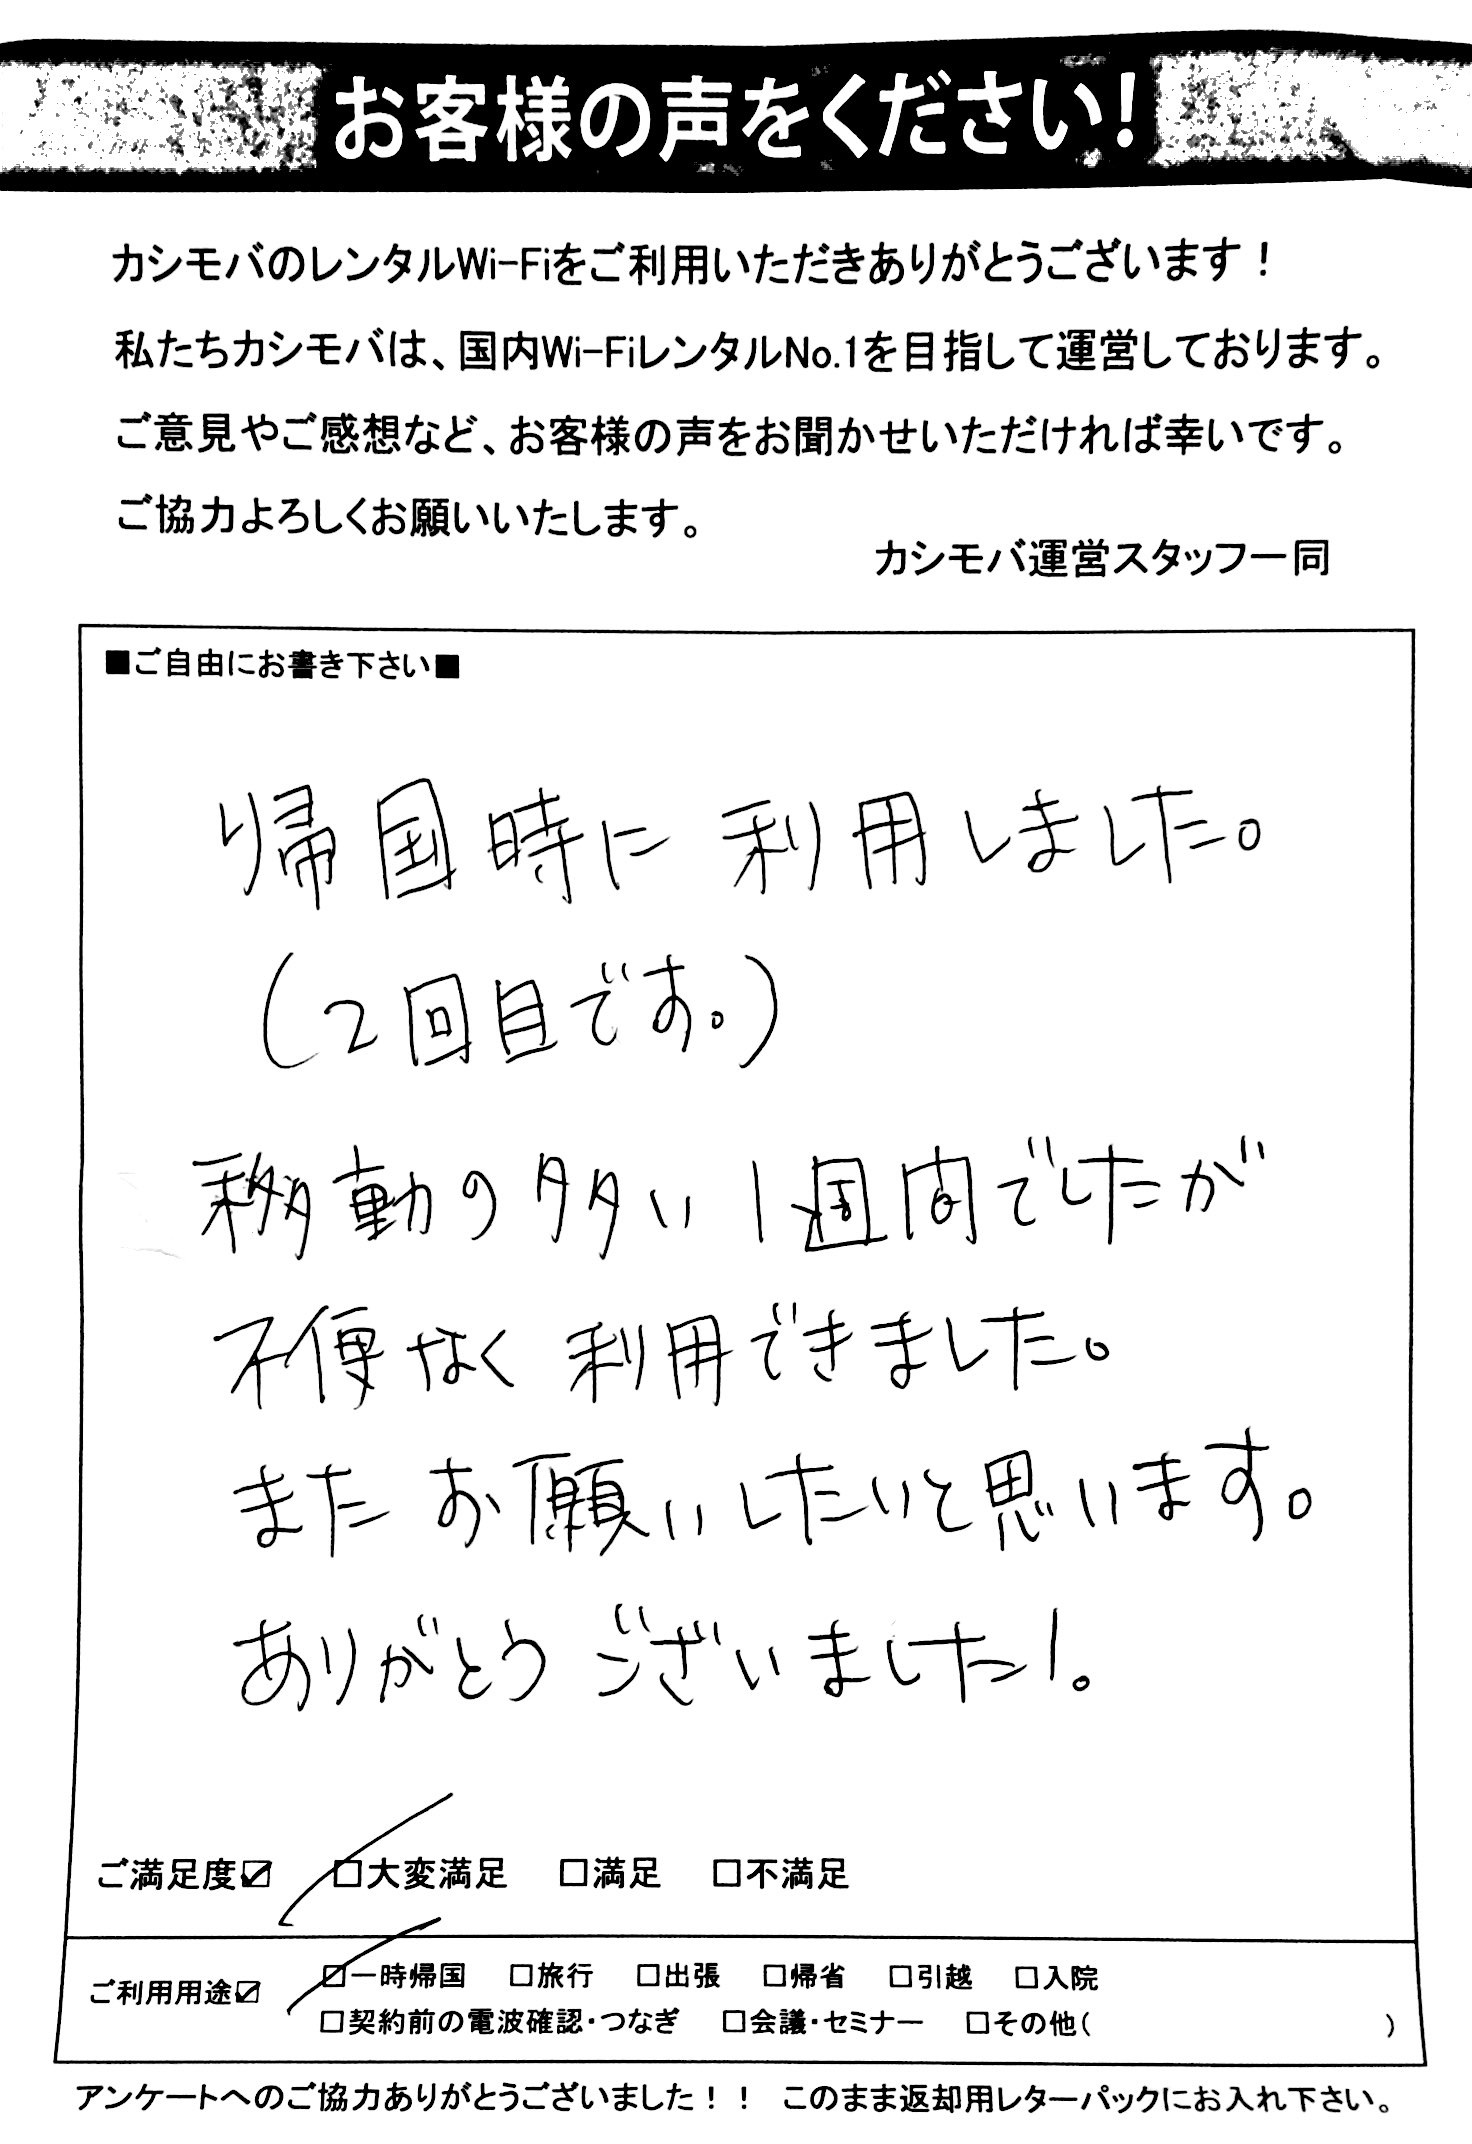 お客様の声をください！
カシモバのレンタルWi-Fiをご利用いただきありがとうございます！
私たちカシモバは、国内Wi-FiレンタルNo.1を目指して運営しております。
ご意見やご感想など、お客様の声をお聞かせいただければ幸いです。
ご協力よろしくお願いいたします。
カシモバ運営スタッフ一同
■ご自由にお書き下さい■
帰国時に利用しました。
(2回目です。)
移動の多い1週間でしたが
不便なく利用できました。
またお願いしたいと思います。
ありがとうございました!。
ご満足度☑ □大変満足 □満足 □不満足
ご利用用途☑ □一時帰国 □旅行 □出張 □帰省 □引越 □入院
□契約前の電波確認・つなぎ □会議・セミナー □その他( )
アンケートへのご協力ありがとうございました！！ このまま返却用レターパックにお入れ下さい。